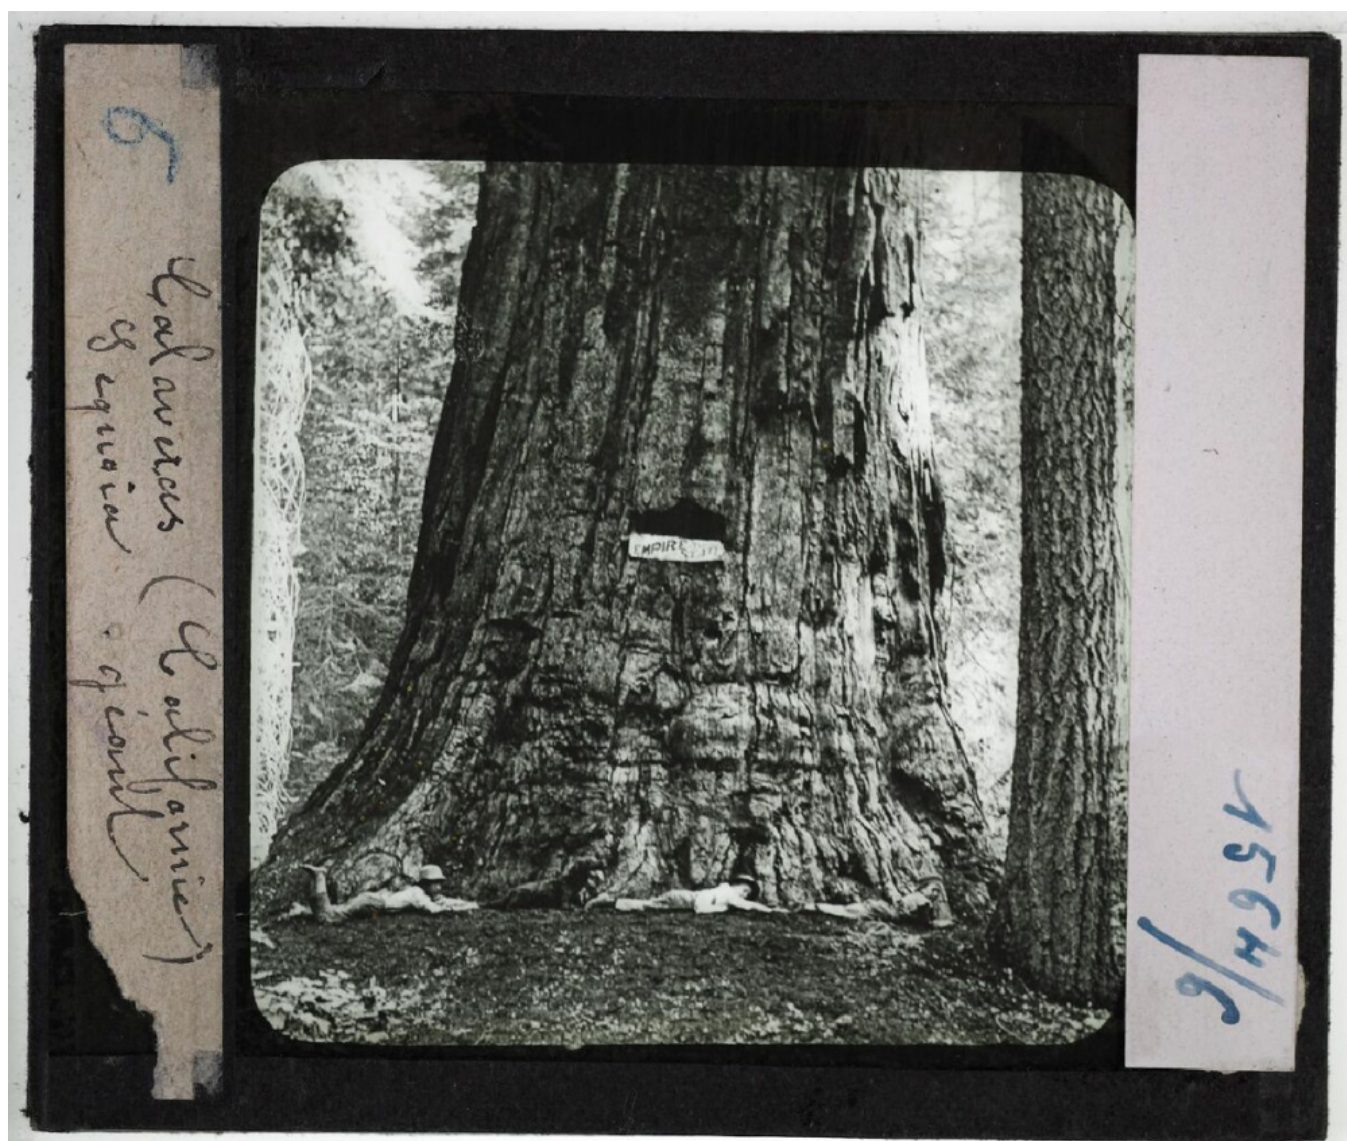 6
Calaveras (Californie)
Sequoia géant
EMPIRE
1564/6